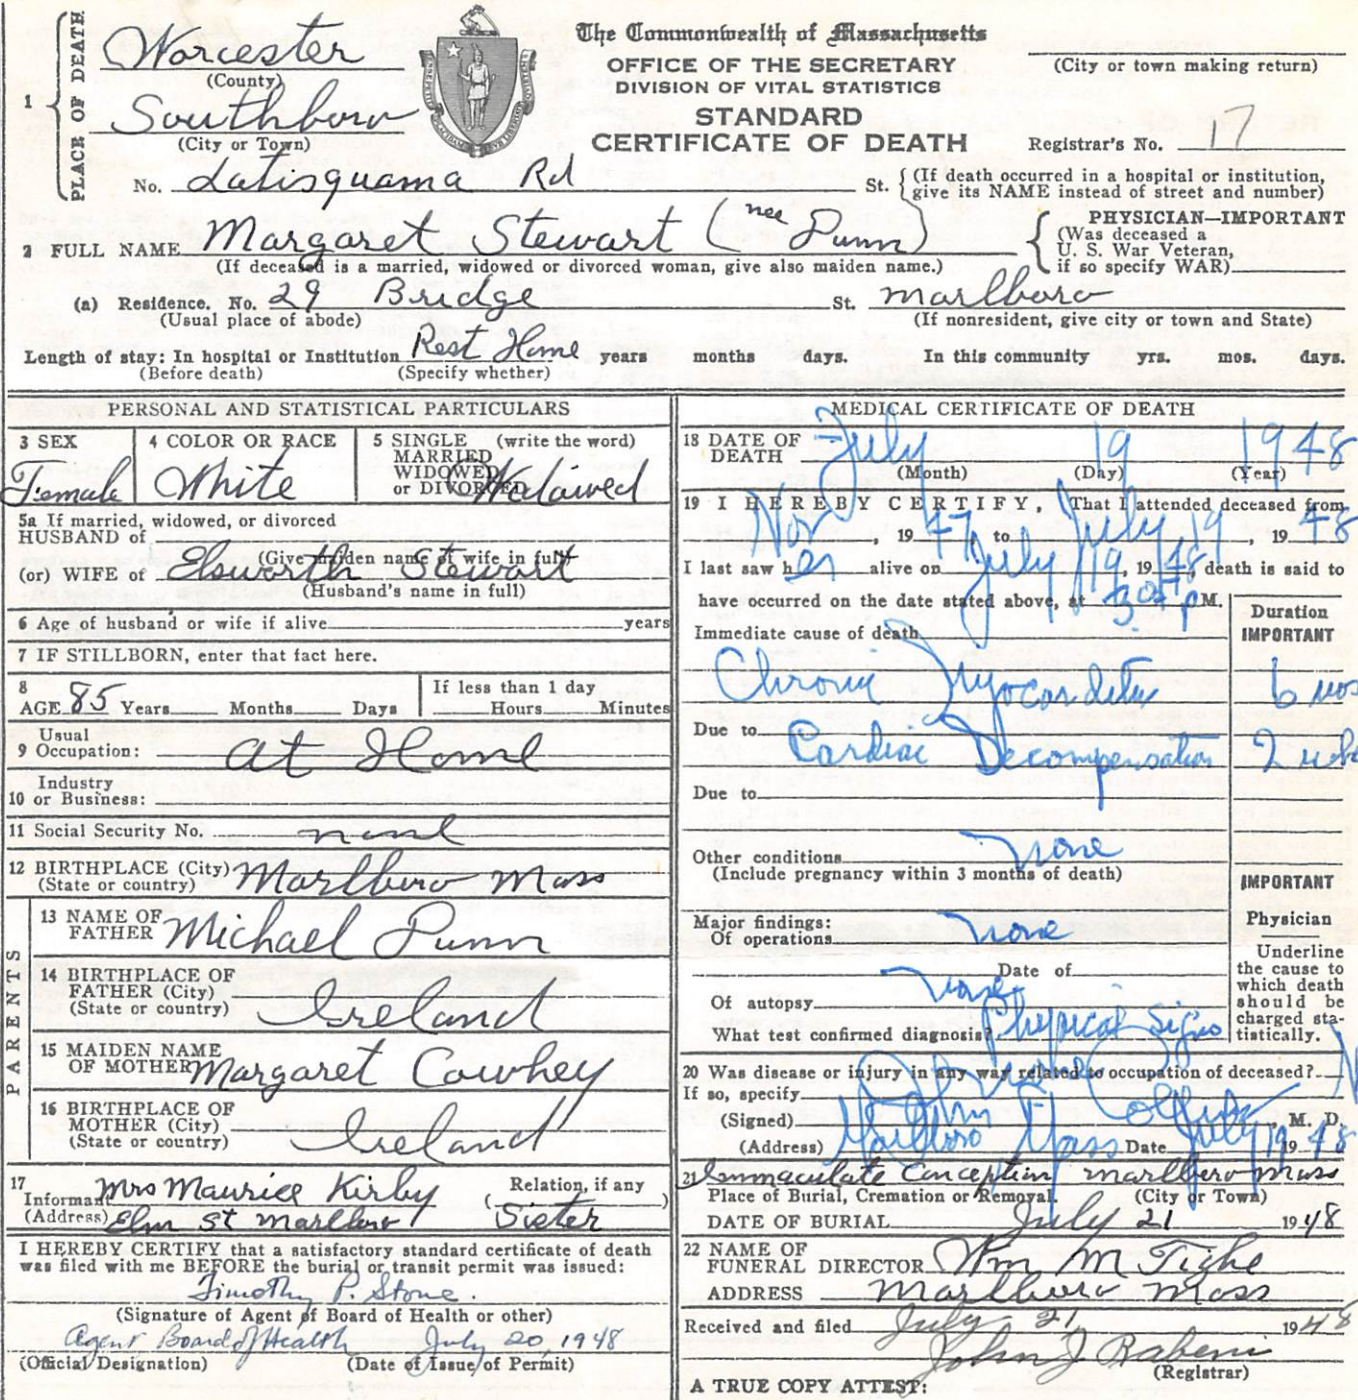 The Commonwealth of Massachusetts
OFFICE OF THE SECRETARY
DIVISION OF VITAL STATISTICS
STANDARD
CERTIFICATE OF DEATH
(City or town making return)
Registrar's No. 17
1 PLACE OF DEATH
Worcester
(County)
Southboro
(City or Town)
No. Latisquama Rd St. (If death occurred in a hospital or institution, give its NAME instead of street and number)
2 FULL NAME Margaret Stewart (nee Dunn)
(If deceased is a married, widowed or divorced woman, give also maiden name.)
PHYSICIAN—IMPORTANT
(Was deceased a
U. S. War Veteran,
if so specify WAR)
(a) Residence. No. 29 Bridge St. Marlboro
(Usual place of abode) (If nonresident, give city or town and State)
Length of stay: In hospital or Institution Rest Home years months days. In this community yrs. mos. days.
(Before death) (Specify whether)
PERSONAL AND STATISTICAL PARTICULARS
3 SEX
Female
4 COLOR OR RACE
White
5 SINGLE (write the word)
MARRIED
WIDOWED
or DIVORCED Widowed
5a If married, widowed, or divorced
HUSBAND of
(Give maiden name of wife in full)
(or) WIFE of Elsworth Stewart
(Husband's name in full)
6 Age of husband or wife if alive years
7 IF STILLBORN, enter that fact here.
8
AGE 85 Years Months Days
If less than 1 day
Hours Minutes
Usual
9 Occupation: At Home
Industry
10 or Business:
11 Social Security No. none
12 BIRTHPLACE (City) Marlboro Mass
(State or country)
PARENTS
13 NAME OF
FATHER Michael Dunn
14 BIRTHPLACE OF
FATHER (City)
(State or country) Ireland
15 MAIDEN NAME
OF MOTHER Margaret Cowhey
16 BIRTHPLACE OF
MOTHER (City)
(State or country) Ireland
17
Informant Mrs Maurice Kirby Relation, if any
(Address) Elm St Marlboro (Sister)
I HEREBY CERTIFY that a satisfactory standard certificate of death
was filed with me BEFORE the burial or transit permit was issued:
Timothy P. Stone.
(Signature of Agent of Board of Health or other)
Agent Board of Health July 20, 1948
(Official Designation) (Date of Issue of Permit)
MEDICAL CERTIFICATE OF DEATH
18 DATE OF
DEATH July 19 1948
(Month) (Day) (Year)
19 I HEREBY CERTIFY, That I attended deceased from
Nov, 1947, to July 19, 1948
I last saw her alive on July 19, 1948, death is said to
have occurred on the date stated above, at P M.
Duration
IMPORTANT
Immediate cause of death
Chronic Myocarditis 6 mos
Due to Cardiac Decompensation 2 wks
Due to
Other conditions none
(Include pregnancy within 3 months of death)
IMPORTANT
Physician
Underline
the cause to
which death
should be
charged sta-
tistically.
Major findings:
Of operations none
Date of
Of autopsy none
What test confirmed diagnosis? Physical Signs
20 Was disease or injury in any way related to occupation of deceased?
If so, specify
(Signed) John M. D.
(Address) Marlboro Mass Date July 19 1948
21 Immaculate Conception Marlboro Mass
Place of Burial, Cremation or Removal. (City or Town)
DATE OF BURIAL July 21 1948
22 NAME OF
FUNERAL DIRECTOR Wm M Tighe
ADDRESS Marlboro Mass
Received and filed July 21 1948
John J Rabeni
(Registrar)
A TRUE COPY ATTEST: